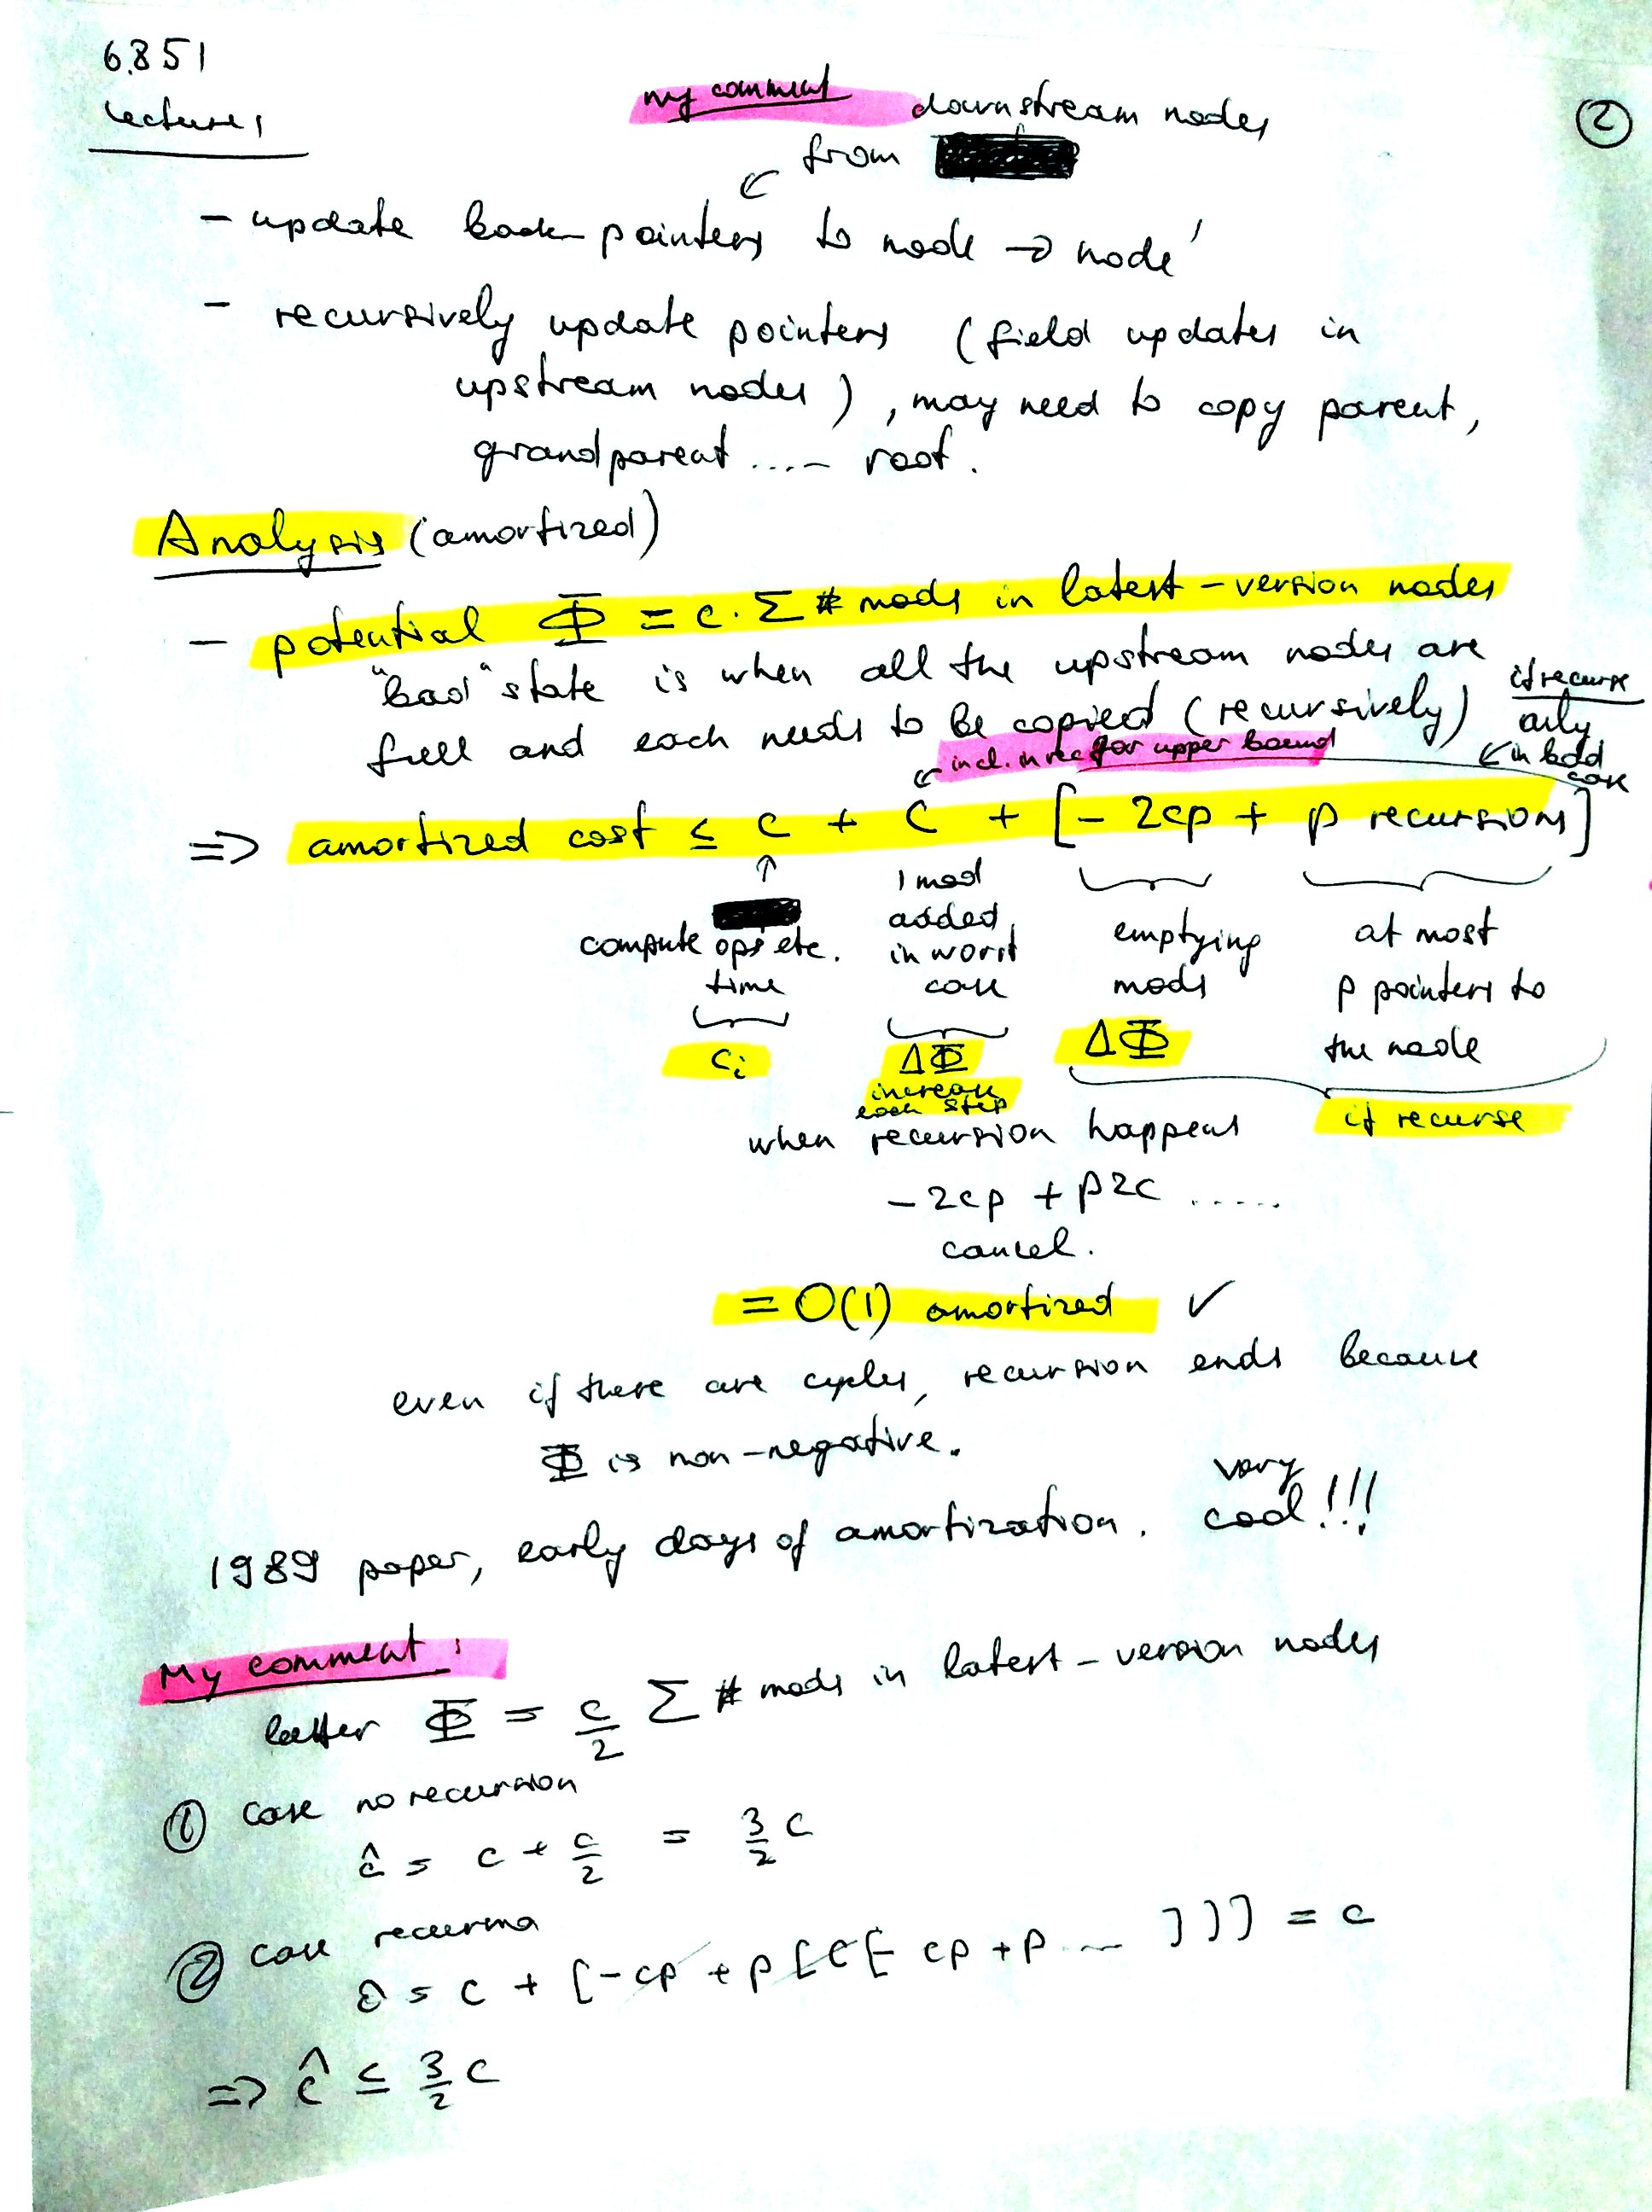 6.851
Lecture 1
②
my comment downstream nodes
from
- update back-pointers to node → node'
- recursively update pointers (field updates in
upstream nodes), may need to copy parent,
grandparent .... root.
Analysis (amortized)
- potential Φ = c · Σ # mods in latest-version nodes
"bad" state is when all the upstream nodes are
full and each needs to be copied (recursively)
if recurse
only
in bad
case
incl. in rec for upper bound
=> amortized cost ≤ c + c + [- 2cp + p recursions]
↑
compute ops etc.
time
c_i
1 mod
added
in worst
case
ΔΦ
increase
each step
emptying
mods
ΔΦ
at most
p pointers to
the node
if recurse
when recursion happens
- 2cp + p2c .....
cancel.
= O(1) amortized ✓
even if there are cycles, recursion ends because
Φ is non-negative.
1989 paper, early days of amortization. very cool!!!
My comment:
better Φ = c/2 Σ # mods in latest-version nodes
① case no recursion
ĉ = c + c/2 = 3/2 c
② case recursion
ĉ = c + [-cp + p[c[- cp + p ... ]]] = c
=> ĉ ≤ 3/2 c